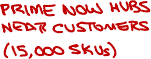 PRIME NOW HUBS
NEAR CUSTOMERS
(15,000 SKUs)